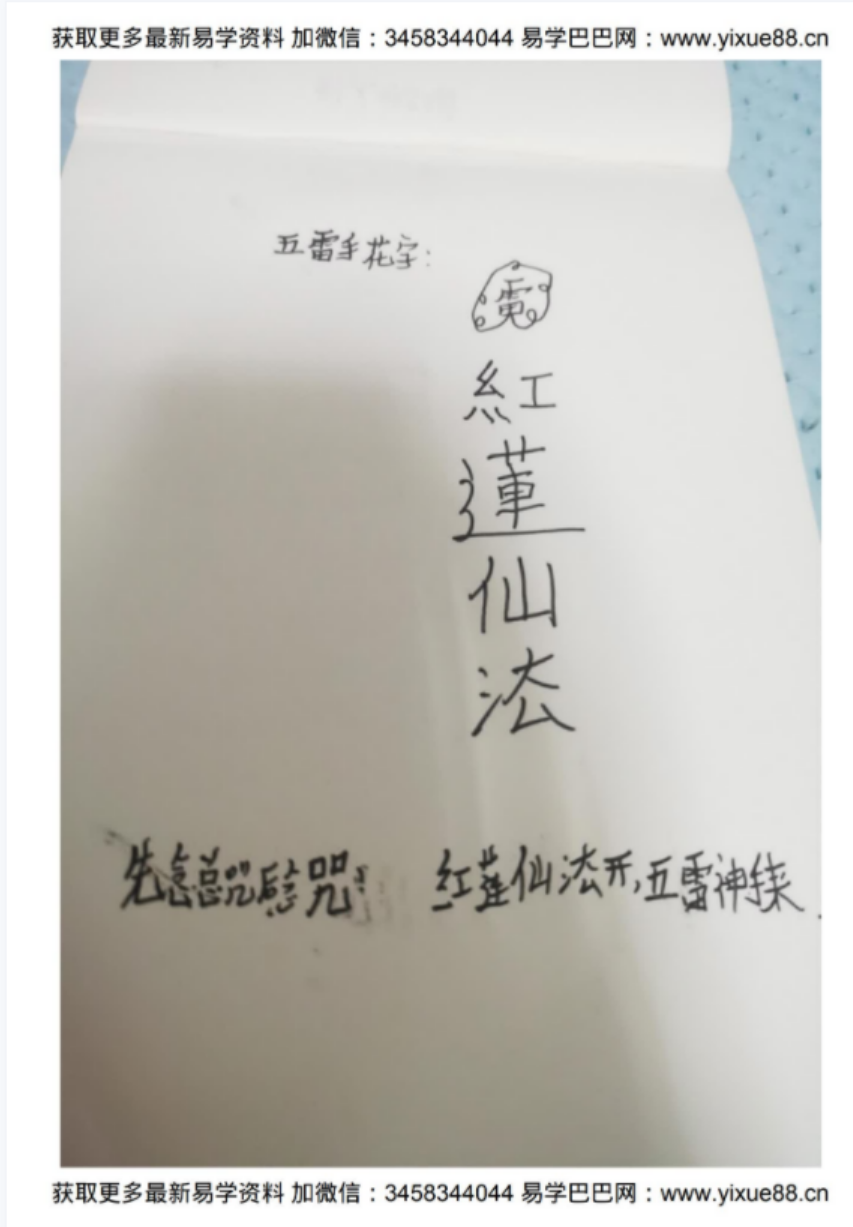 获取更多最新易学资料 加微信：3458344044 易学巴巴网：www.yixue88.cn
五雷手花字：
紅
蓮
仙
法
先念总咒后念咒： 红莲仙法开，五雷神手来
获取更多最新易学资料 加微信：3458344044 易学巴巴网：www.yixue88.cn